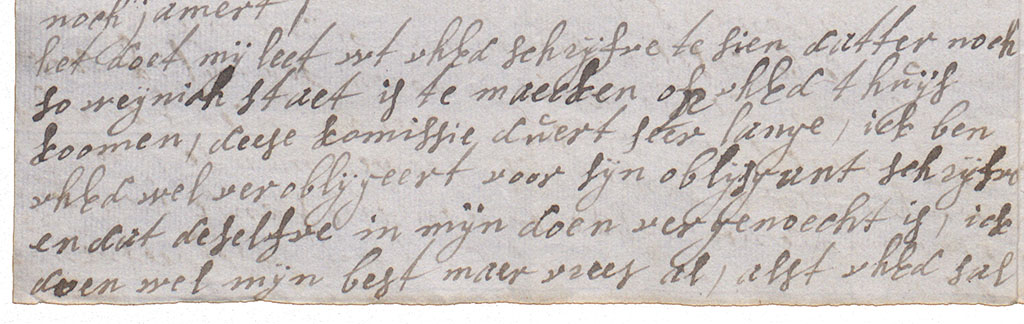 noch jamert /
het doet mij leet wt uhEd schrijfve te sien datter noch
so weijnich staet is te maecken op uhEd thuijs
koomen, deese komissie duert seer lange, ick ben
uhEd wel veroblijgeert voor sijn oblijgant schrijfve
en dat deselfve in mijn doen vergenoecht is, ick
doen wel mijn best maer vrees al, alst uhEd sal